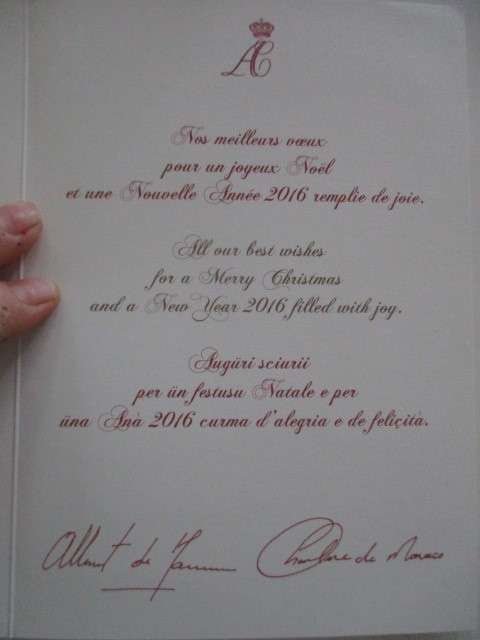 AC
Nos meilleurs vœux
pour un joyeux Noël
et une Nouvelle Année 2016 remplie de joie.
All our best wishes
for a Merry Christmas
and a New Year 2016 filled with joy.
Augüri sciurii
per ün festusu Natale e per
üna Anà 2016 curma d'alegria e de feliçità.
Albert de Monaco Charlène de Monaco